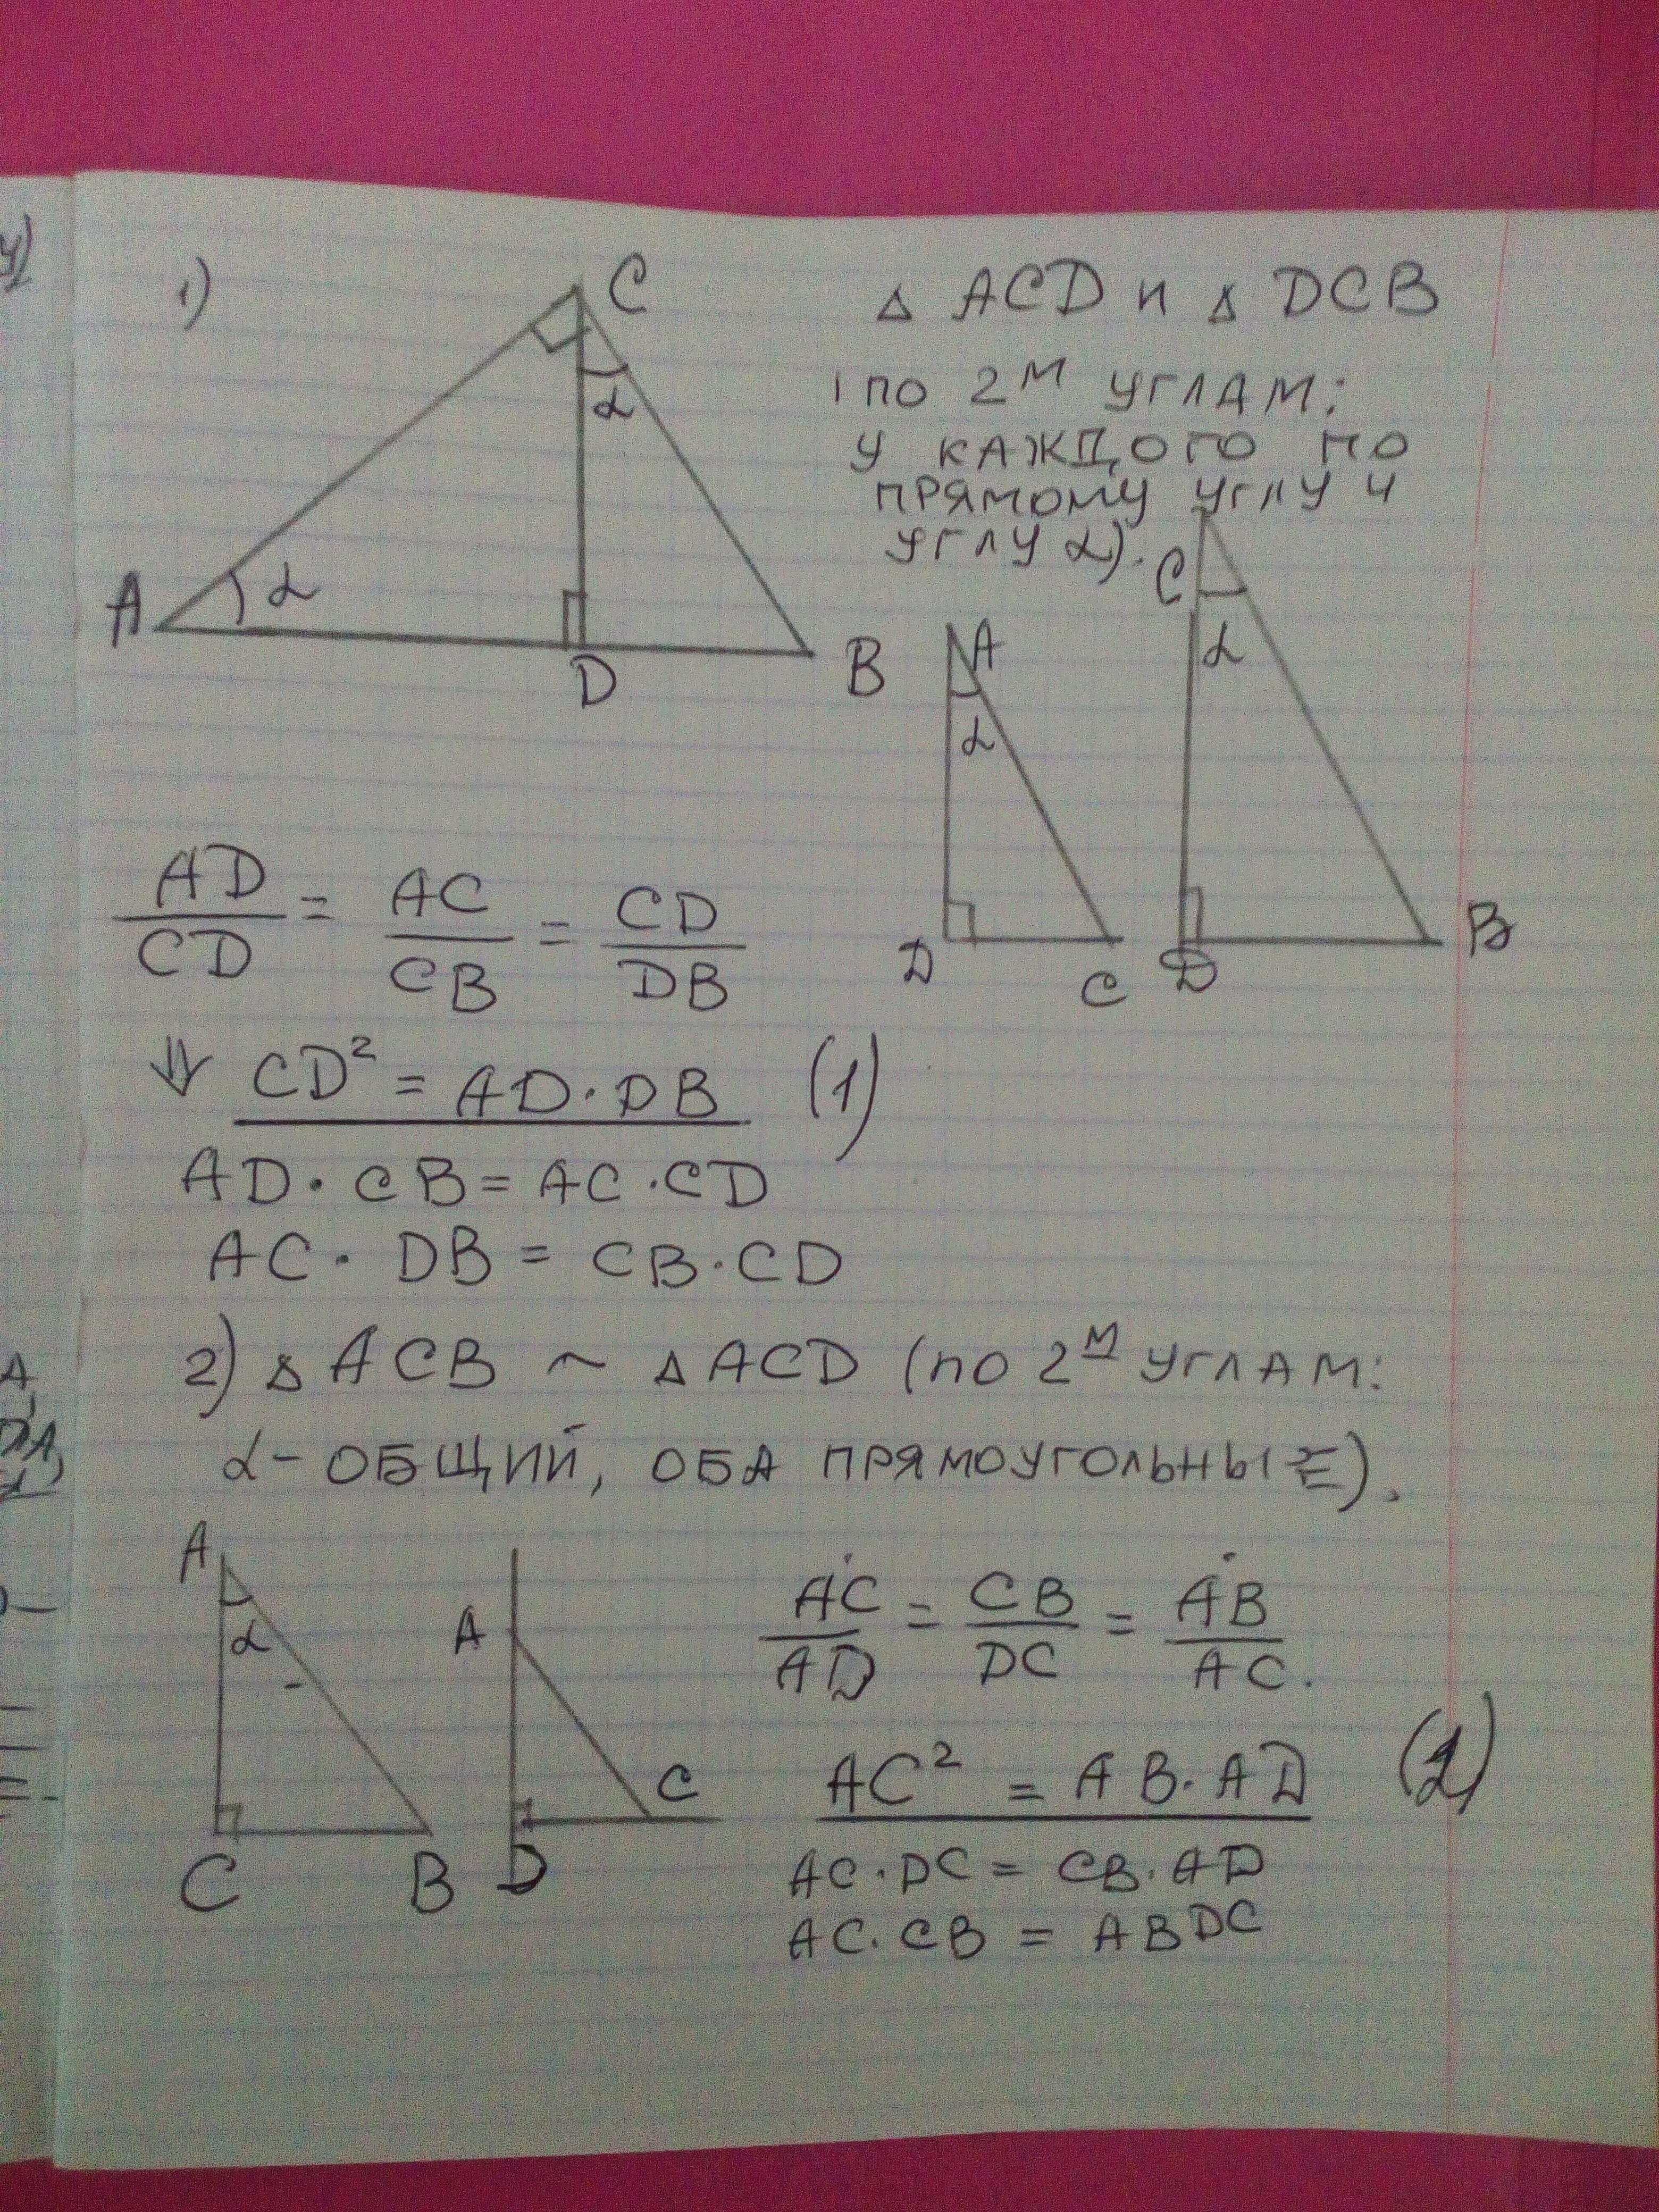 1)
C
△ ACD и △ DCB
по 2М УГЛАМ:
У КАЖДОГО ПО
ПРЯМОМУ УГЛУ И
УГЛУ α).
α
A α
D
B
A
α
D C
C
α
D B
AD/CD = AC/CB = CD/DB
⇓ CD² = AD·DB (1)
AD·CB = AC·CD
AC·DB = CB·CD
2) △ ACB ~ △ ACD (ПО 2М УГЛАМ:
α - ОБЩИЙ, ОБА ПРЯМОУГОЛЬНЫЕ).
A
α
C B
A
C
D
AC/AD = CB/DC = AB/AC.
AC² = AB·AD (2)
AC·DC = CB·AD
AC·CB = ABDC